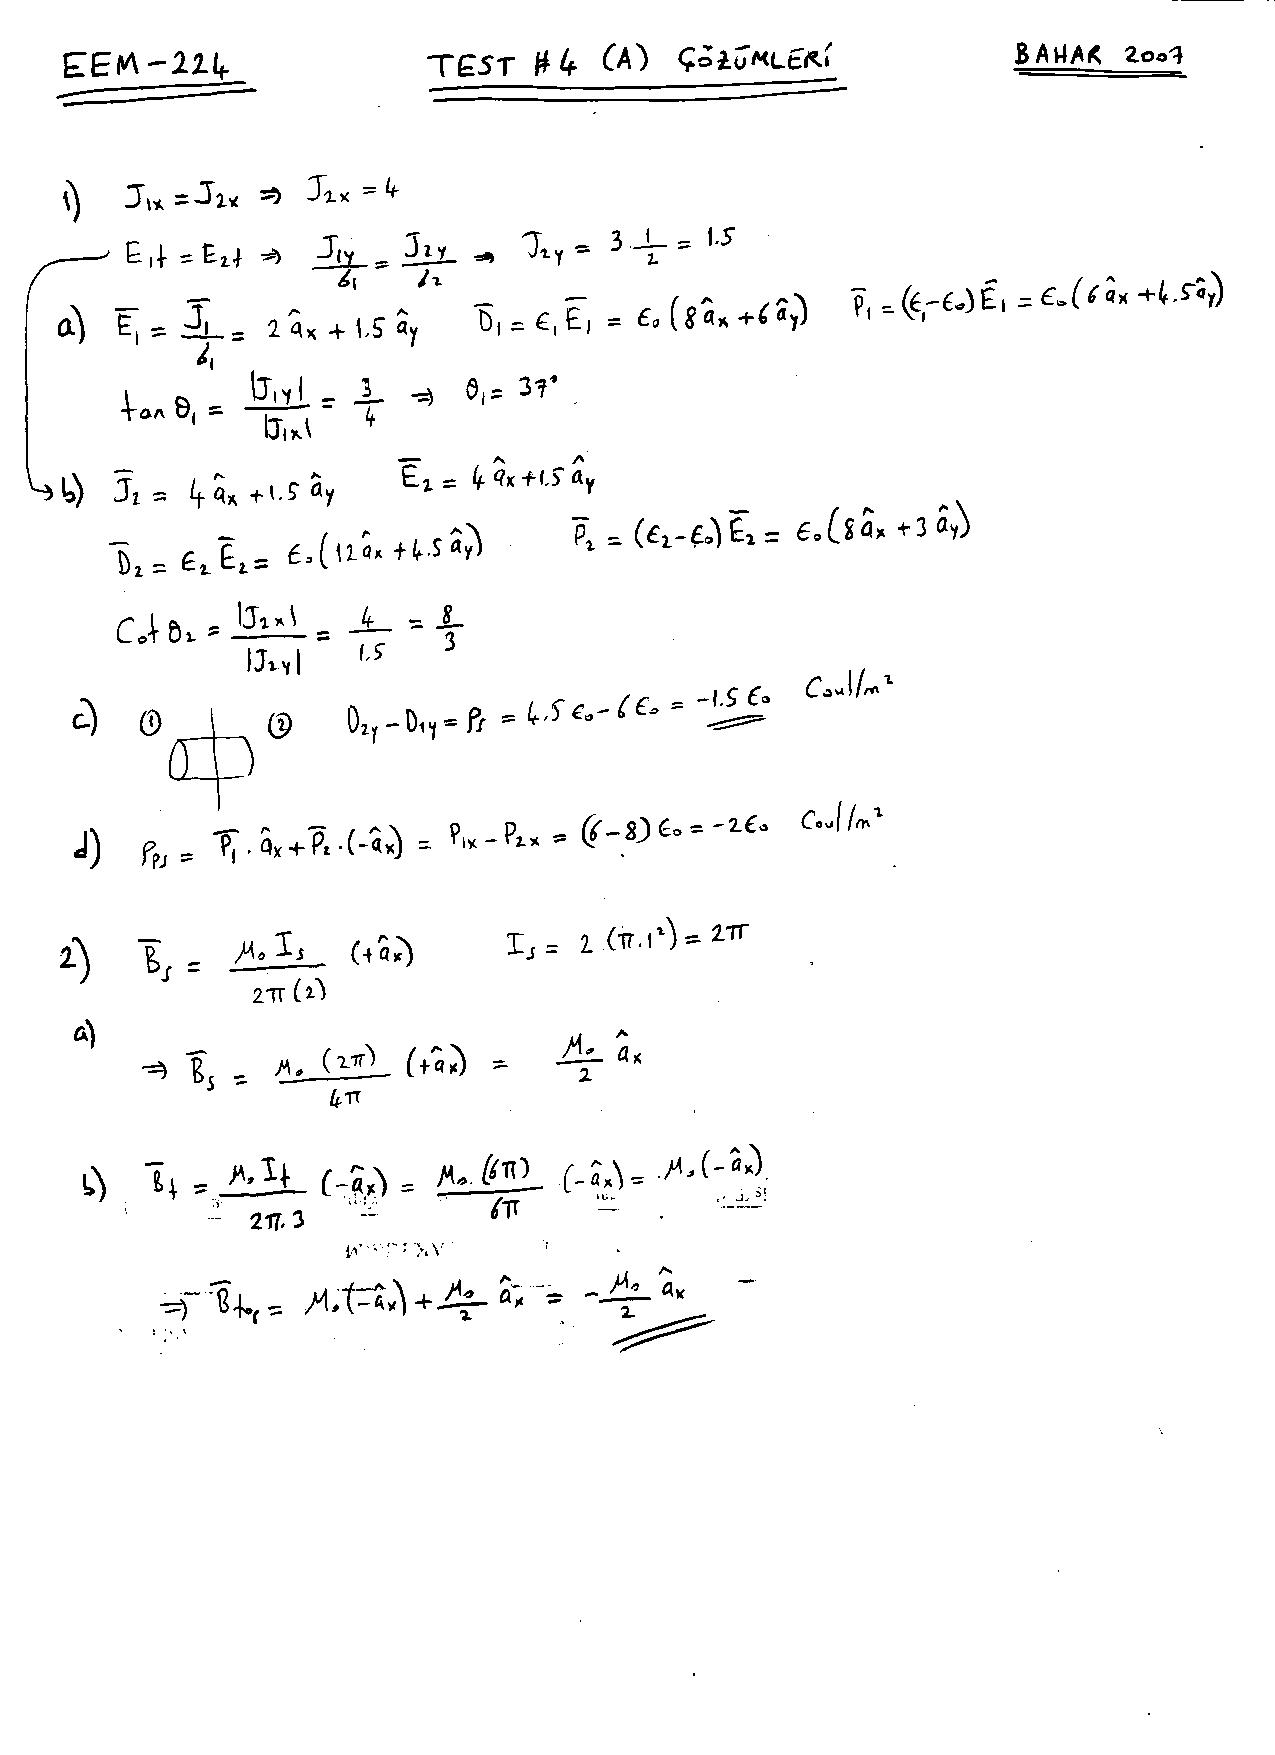 EEM-224 TEST #4 (A) ÇÖZÜMLERİ BAHAR 2007
1) J1x = J2x ⇒ J2x = 4
E1t = E2t ⇒ J1y/σ1 = J2y/σ2 ⇒ J2y = 3 · 1/2 = 1.5
a) Ē1 = J̄1/σ1 = 2 âx + 1.5 ây D̄1 = ϵ1 Ē1 = ϵ0 (8 âx + 6 ây) P̄1 = (ϵ1-ϵ0) Ē1 = ϵ0 (6 âx + 4.5 ây)
tan θ1 = |J1y|/|J1x| = 3/4 ⇒ θ1 = 37°
b) J̄2 = 4 âx + 1.5 ây Ē2 = 4 âx + 1.5 ây
D̄2 = ϵ2 Ē2 = ϵ0 (12 âx + 4.5 ây) P̄2 = (ϵ2-ϵ0) Ē2 = ϵ0 (8 âx + 3 ây)
Cot θ2 = |J2x|/|J2y| = 4/1.5 = 8/3
c) ① ② D2y - D1y = ρs = 4.5 ϵ0 - 6 ϵ0 = -1.5 ϵ0 Coul/m²
d) ρps = P̄1 · âx + P̄2 · (-âx) = P1x - P2x = (6-8) ϵ0 = -2ϵ0 Coul/m²
2) B̄s = μ0 Is/2π(2) (+âx) Is = 2 (π.1²) = 2π
a)
⇒ B̄s = μ0 (2π)/4π (+âx) = μ0/2 âx
b) B̄f = μ0 If/2π.3 (-âx) = μ0 (6π)/6π (-âx) = μ0 (-âx)
⇒ B̄top = μ0 (-âx) + μ0/2 âx = -μ0/2 âx